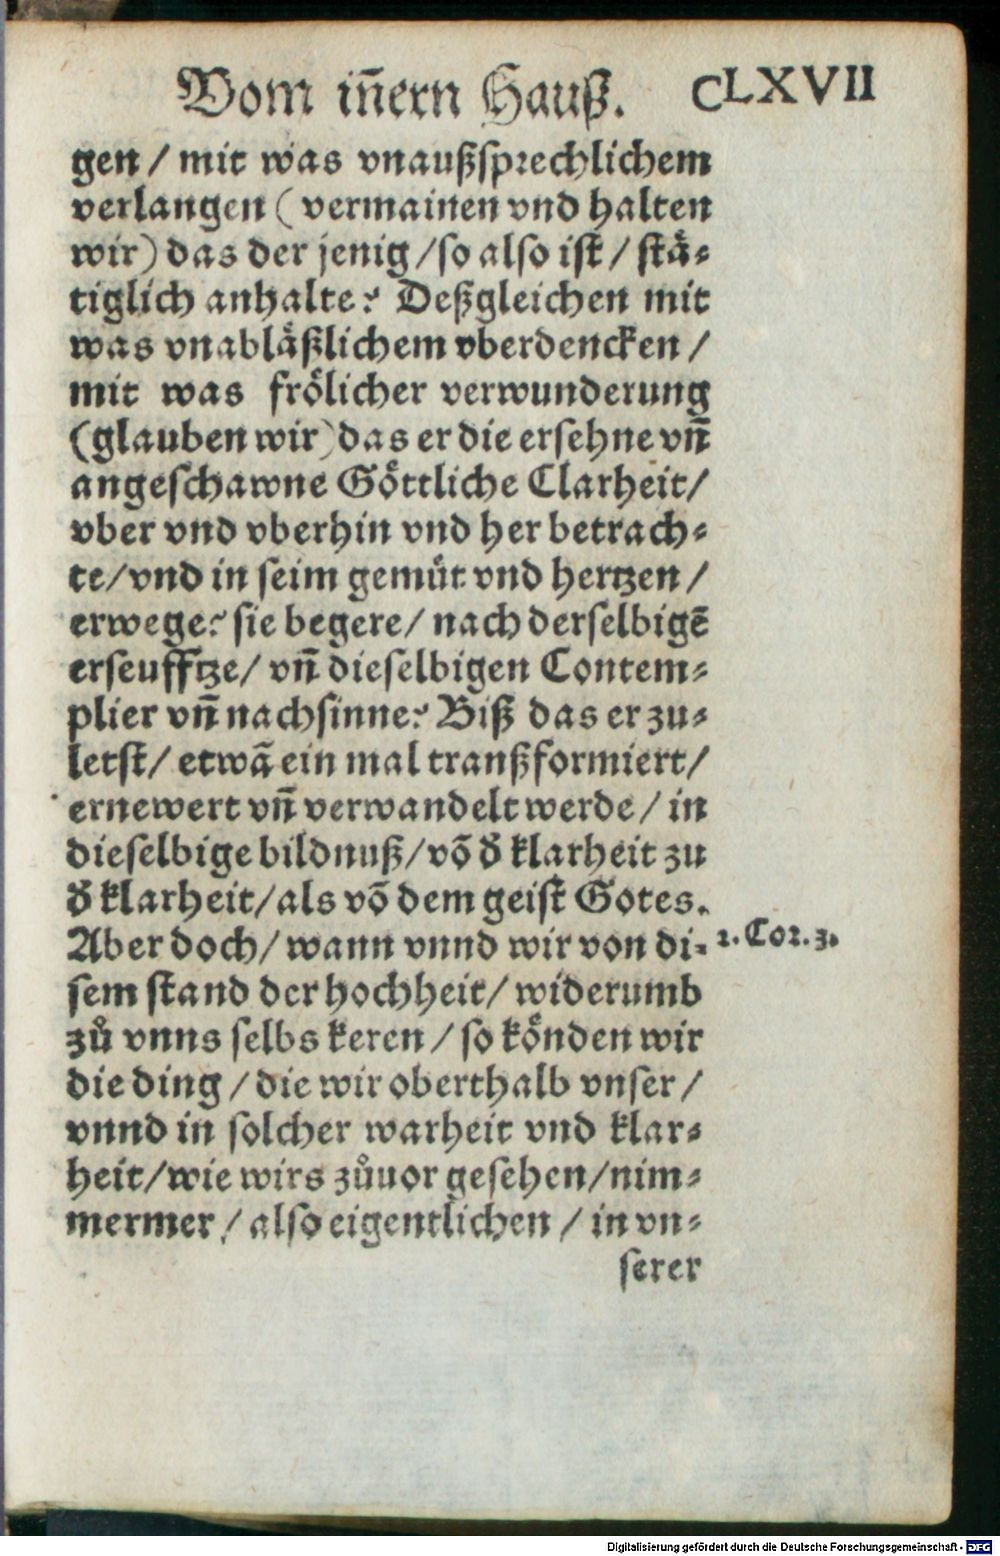 Vom iñern Hauß. CLXVII
gen / mit was vnaußsprechlichem
verlangen ( vermainen vnd halten
wir) das der jenig / so also ist / stå-
tiglich anhalte? Deßgleichen mit
was vnablåßlichem vberdencken /
mit was frölicher verwunderung
(glauben wir) das er die ersehne vñ
angeschawne Göttliche Clarheit /
vber vnd vberhin vnd her betrach-
te / vnd in seim gemüt vnd hertzen /
erwege? sie begere / nach derselbigē
erseufftze / vñ dieselbigen Contem-
plier vñ nachsinne? Biß das er zu-
letst / etwā ein mal tranßformiert /
ernewert vñ verwandelt werde / in
dieselbige bildnuß / võ d̄ klarheit zu
d̄ klarheit / als võ dem geist Gotes.
Aber doch / wann vnnd wir von di- 2. Cor. 3.
sem stand der hochheit / widerumb
zů vnns selbs keren / so könden wir
die ding / die wir oberthalb vnser /
vnnd in solcher warheit vnd klar-
heit / wie wirs zůuor gesehen / nim-
mermer / also eigentlichen / in vn-
serer
Digitalisierung gefördert durch die Deutsche Forschungsgemeinschaft - DFG